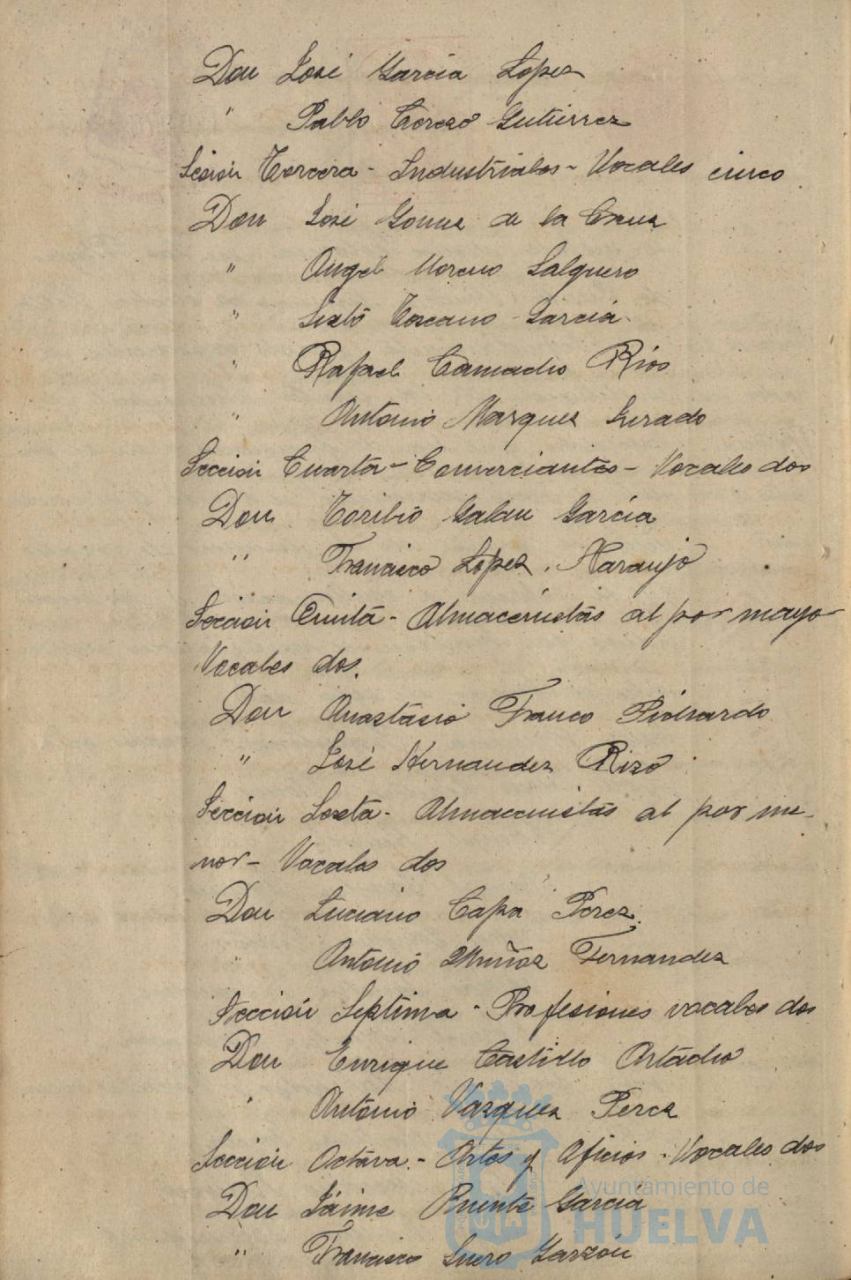 Don José Garcia Lopez
" Pablo Cerezo Gutierrez
Sección Tercera - Industriales - Vocales cinco
Don José Gomez de la Cruz
" Angel Moreno Salguero
" Sixto Toscano Garcia.
" Rafael Camacho Rios
" Antonio Marquez
Sección Cuarta - Comerciantes - Vocales dos
Don Toribio Galan García
" Francisco López Naranjo
Sección Quinta - Almacenistas al por mayor
Vocales dos.
Don Anastasio Franco
" José Hernandez Rizo
Sección Sexta - Almacenistas al por me-
nor - Vocales dos
Don Luciano Capa Perez.
" Antonio Muñoz Fernandez
Sección Septima - Profesiones vocales dos
Don Enrique Castillo
" Antonio Vazquez Perez
Sección Octava. - Artes y Oficios - Vocales dos
Don Jaime Puente Garcia
" Francisco Suero Garzón
Ayuntamiento de
HUELVA